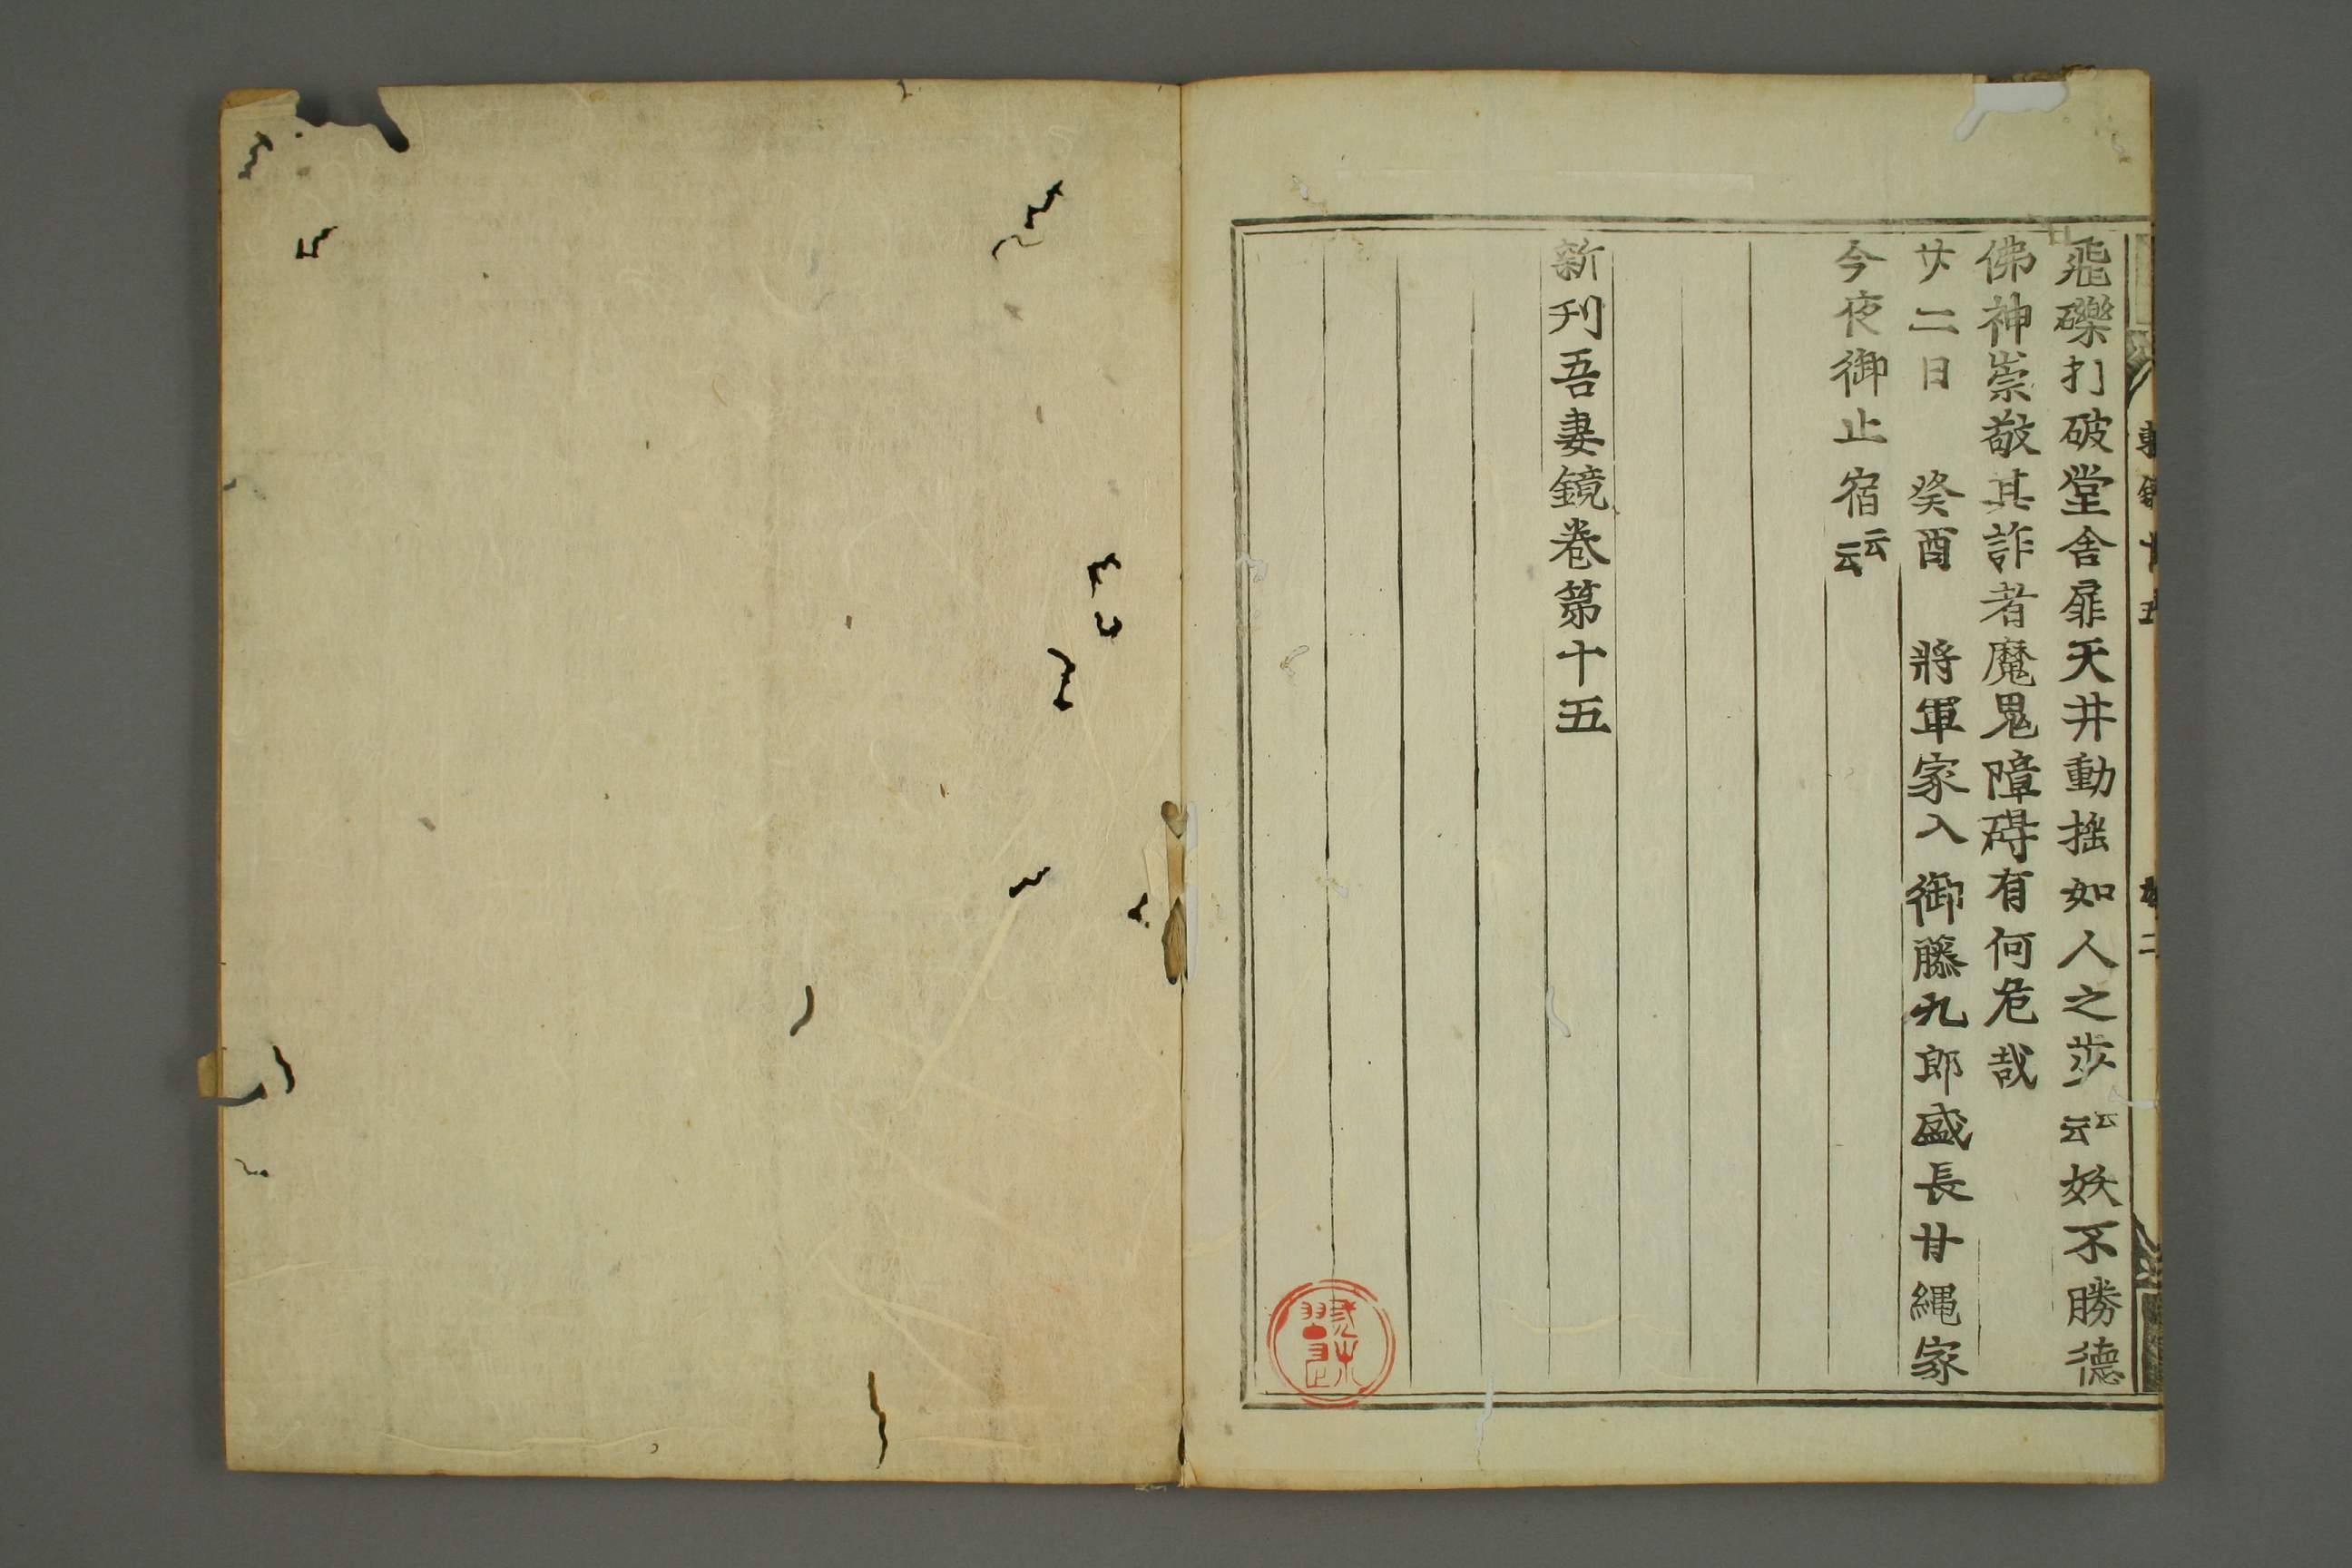 飛礫打破堂舎扉天井動揺如人之步云云妖不勝德
佛神崇敬其詐者魔鬼障碍有何危哉
廿二日 癸酉 將軍家入御藤九郎盛長甘縄家
今夜御止宿云云
新刊吾妻鏡卷第十五